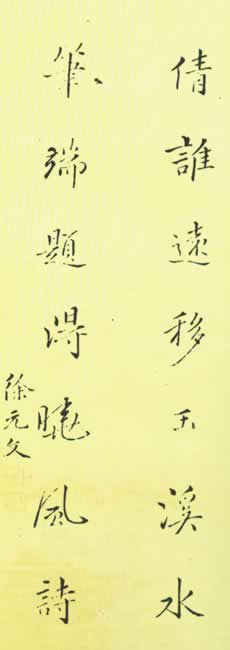 倩誰遠移玉溪水
筆端題得曉風詩
徐元文